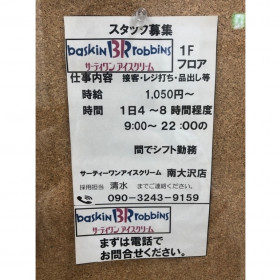 スタッフ募集
baskin BR robbins 1F
サーティワン アイスクリーム フロア
仕事内容 接客・レジ打ち・品出し等
時給 1,050円〜
時間 1日4〜8時間程度
9:00〜 22:00の
間でシフト勤務
サーティーワンアイスクリーム 南大沢店
採用担当 清水 までご連絡ください。
090-3243-9159
baskin BR robbins
サーティワン アイスクリーム
まずは電話で
お問合せください。